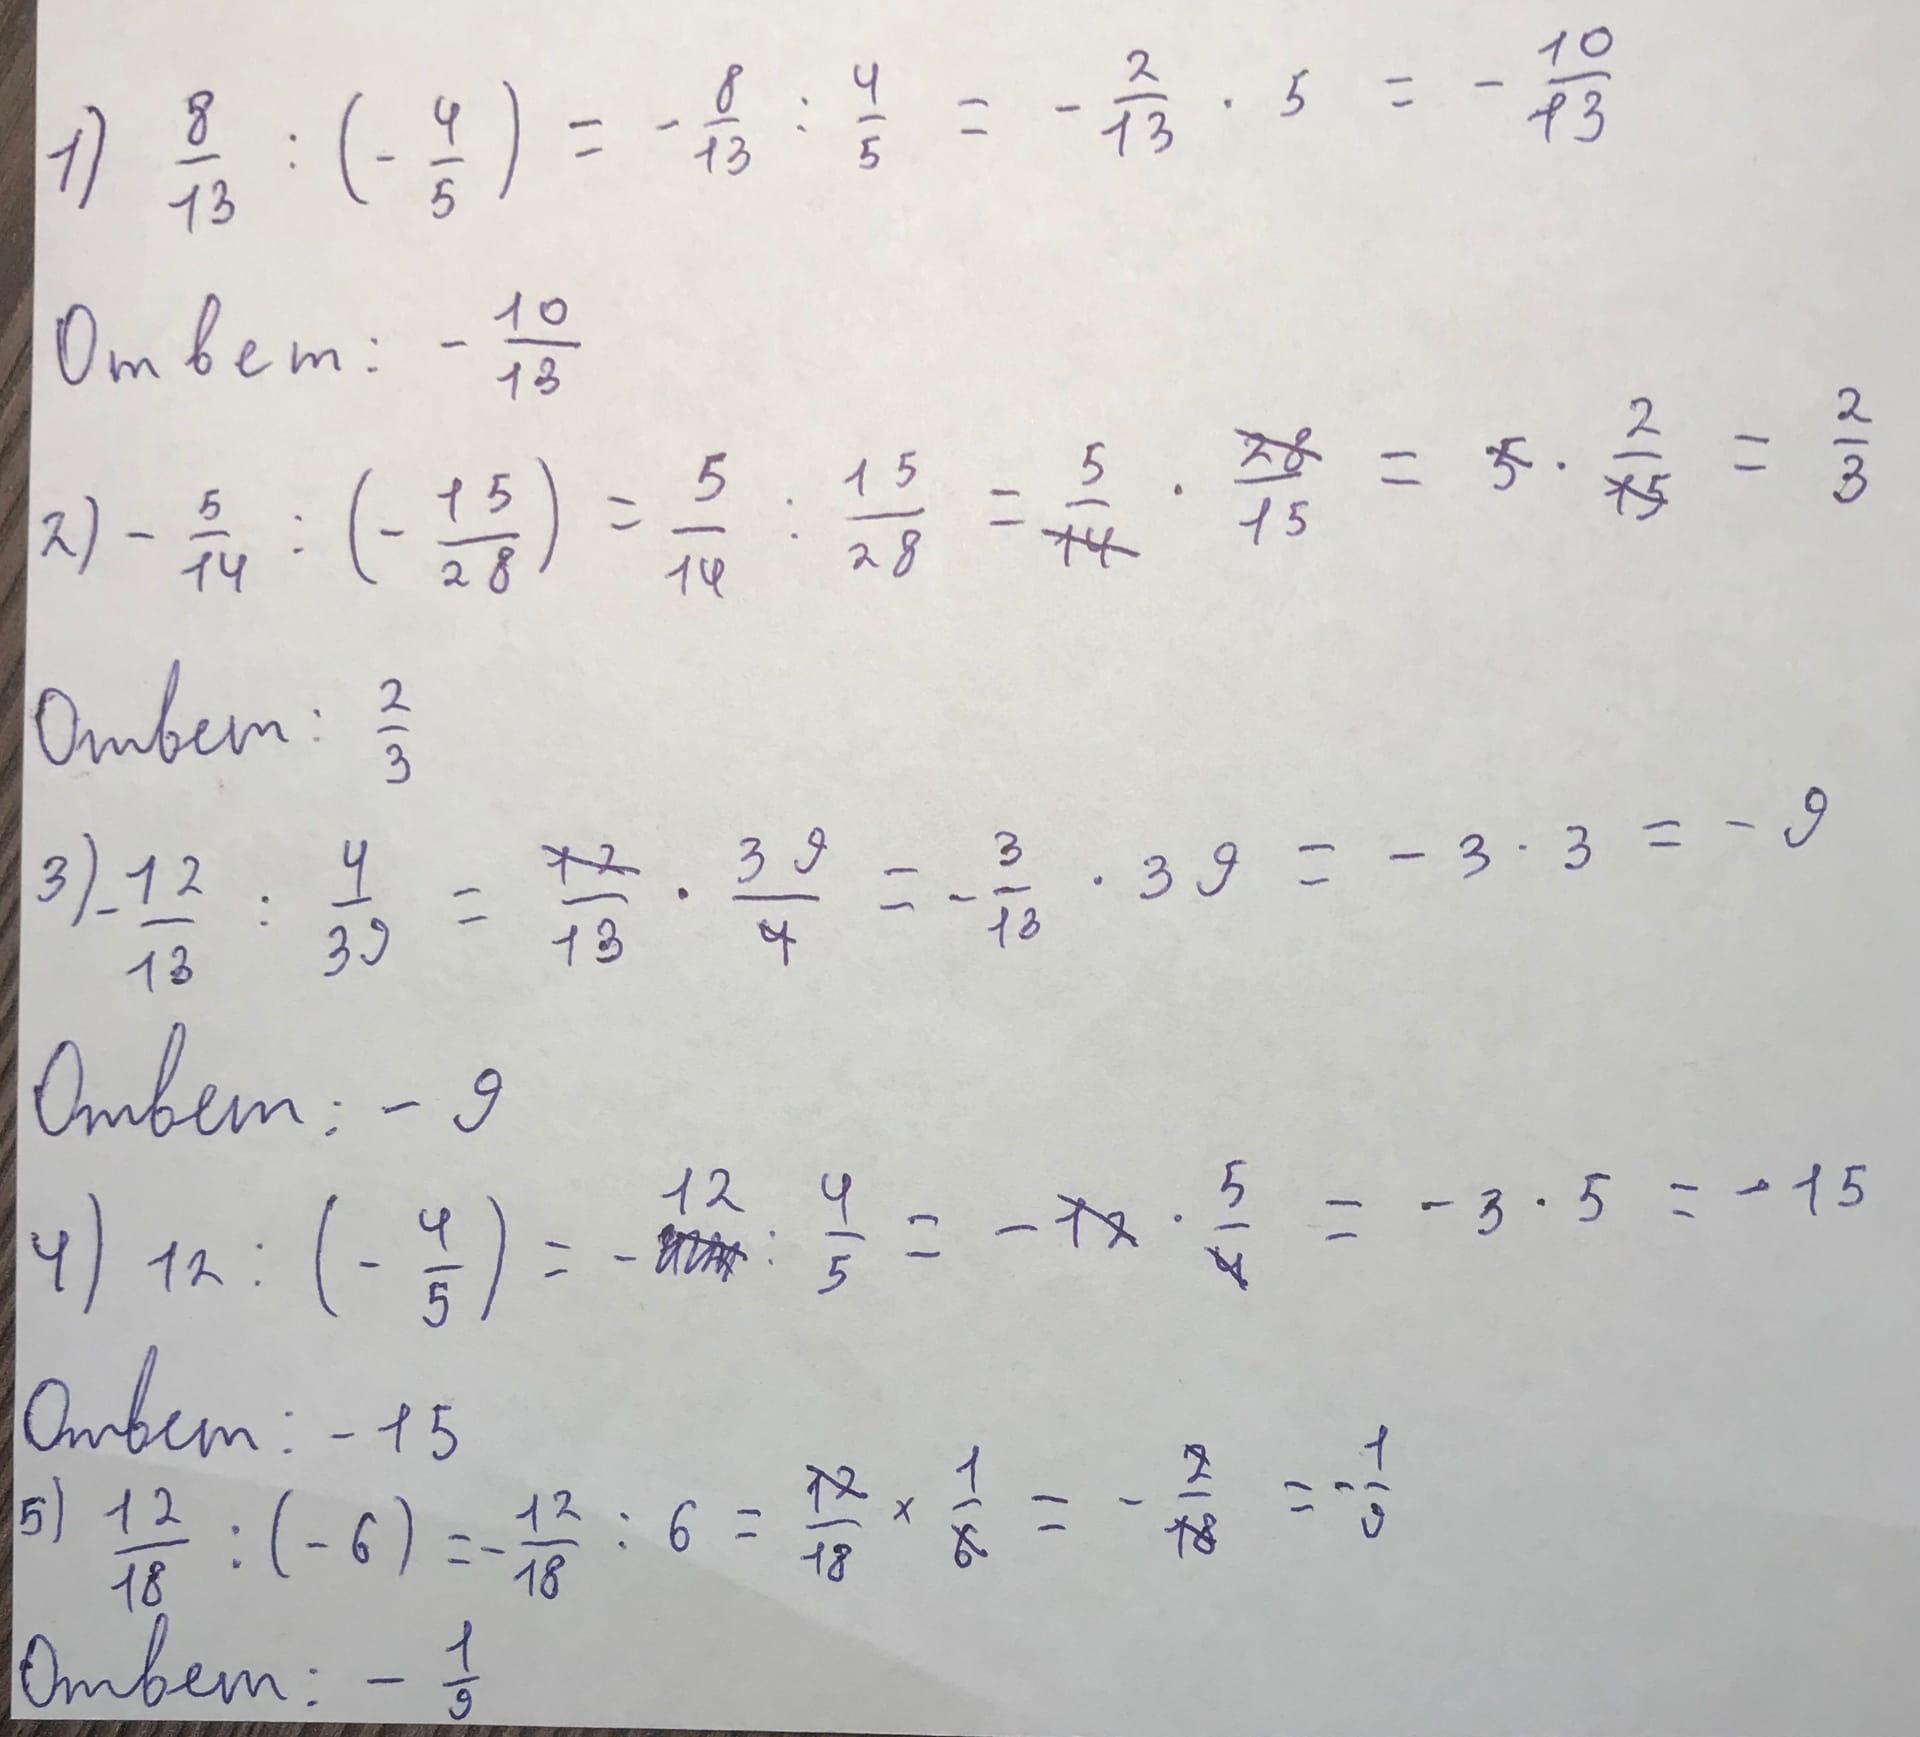 1) 8/13 : (- 4/5) = - 8/13 : 4/5 = - 2/13 · 5 = - 10/13
Ответ: - 10/13
2) - 5/14 : (- 15/28) = 5/14 : 15/28 = 5/14 · 28/15 = 5 · 2/15 = 2/3
Ответ: 2/3
3) - 12/13 : 4/39 = 12/13 · 39/4 = - 3/13 · 39 = - 3 · 3 = - 9
Ответ: - 9
4) 12 : (- 4/5) = - 12 : 4/5 = - 12 · 5/4 = - 3 · 5 = - 15
Ответ: - 15
5) 12/18 : (- 6) = - 12/18 : 6 = 12/18 × 1/6 = - 2/18 = - 1/9
Ответ: - 1/9